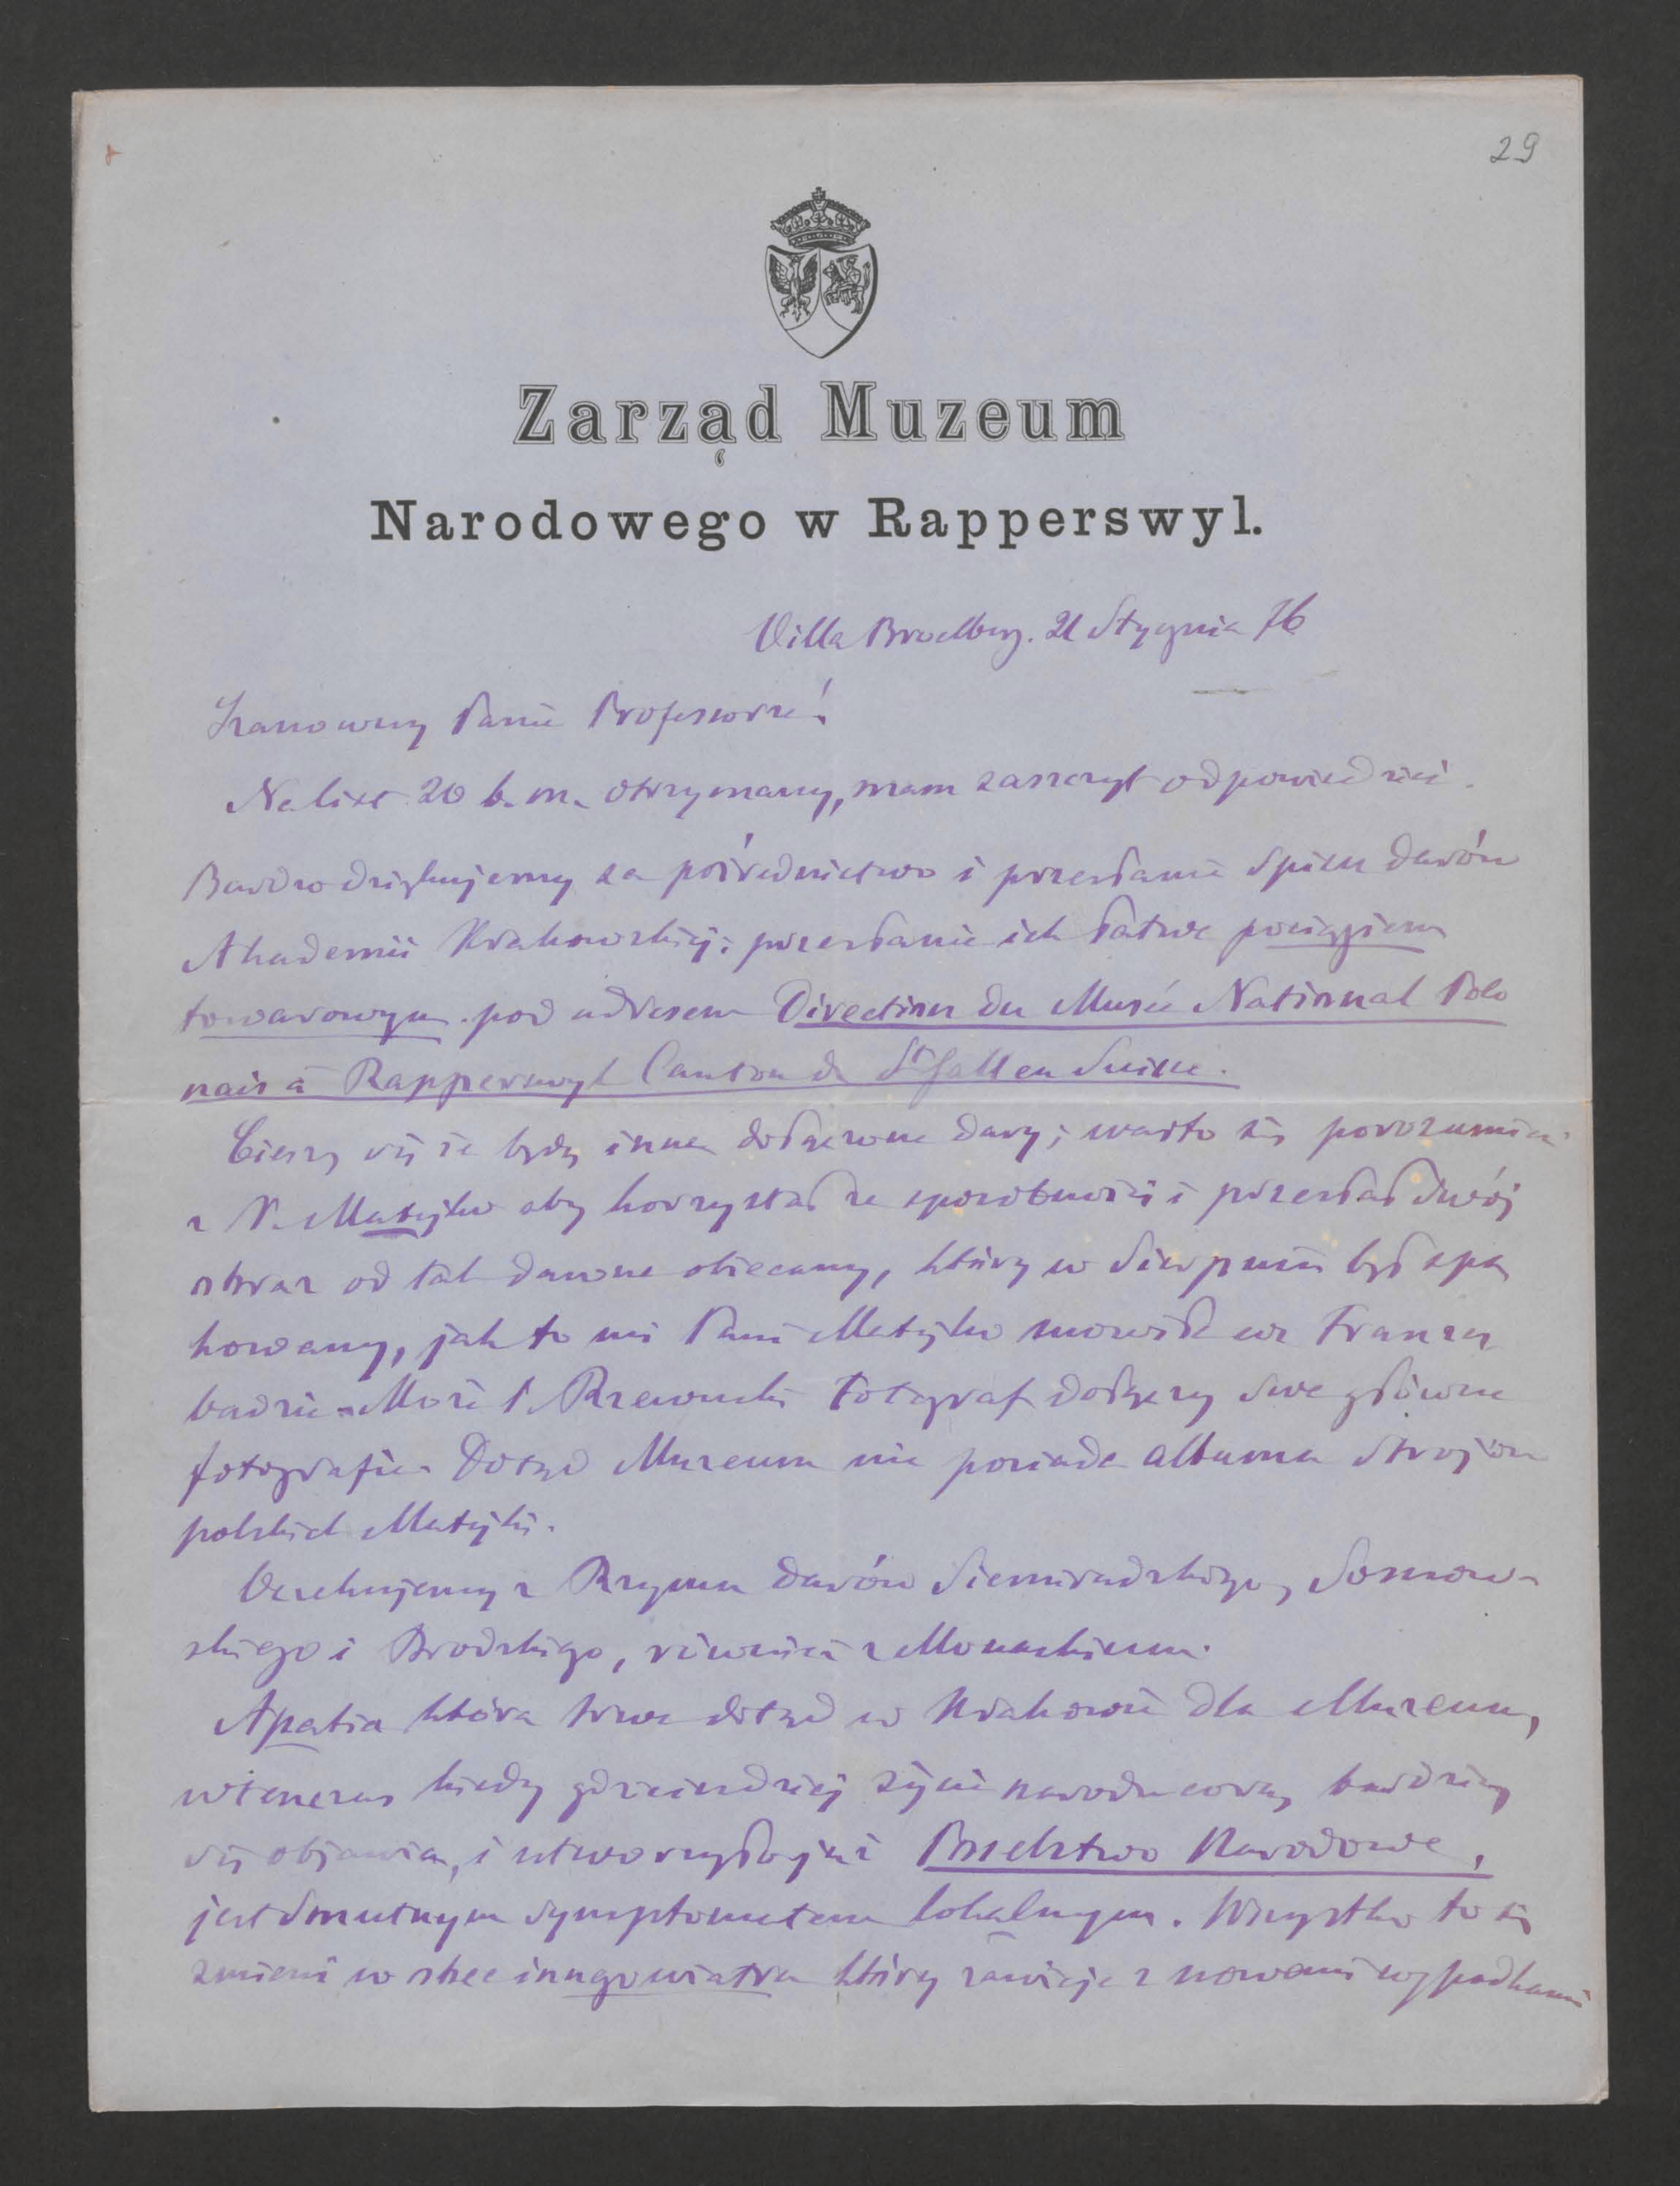 29
Zarząd Muzeum
Narodowego w Rapperswyl.
Villa Broelberg. 21 Stycznia 76
Szanowny Panie Profesorze!
Na list 20 b. m. otrzymany, mam zaszczyt odpowiedzieć.
Bardzo dziękujemy za pośrednictwo i przesłanie Spisu darów
Akademii Krakowskiej; przesłanie ich łatwe pociągiem
towarowym pod adresem Direction du Musée National Polo
nais à Rapperswyl Canton de St Gallen Suisse.
Cieszy się że będą inne dołączone dary; warto się porozumieć
z P. Matejko aby korzystał ze sposobności i przesłał swój
obraz od tak dawna obiecany, który w Sierpniu był spa
kowany, jak to mi Pani Matejko mówiła we Franzes
badzie. Może P. Rzewuski fotograf dołączy swe główne
fotografie. Dotąd Muzeum nie posiada albumu Strojów
polskich Matejki.
Oczekujemy z Rzymu darów Siemiradzkiego, Sosnow-
skiego i Brodzkiego, również z Monachium.
Apatia która trwa dotąd w Krakowie dla Muzeum,
wtenczas kiedy gdzieindziej życie narodu coraz bardziej
się objawia, i utworzyło już Poselstwo Narodowe,
jest smutnym symptomatem lokalnym. Wszystko to się
zmieni w skec innego wiatru który zawieje z nowemi wypadkami